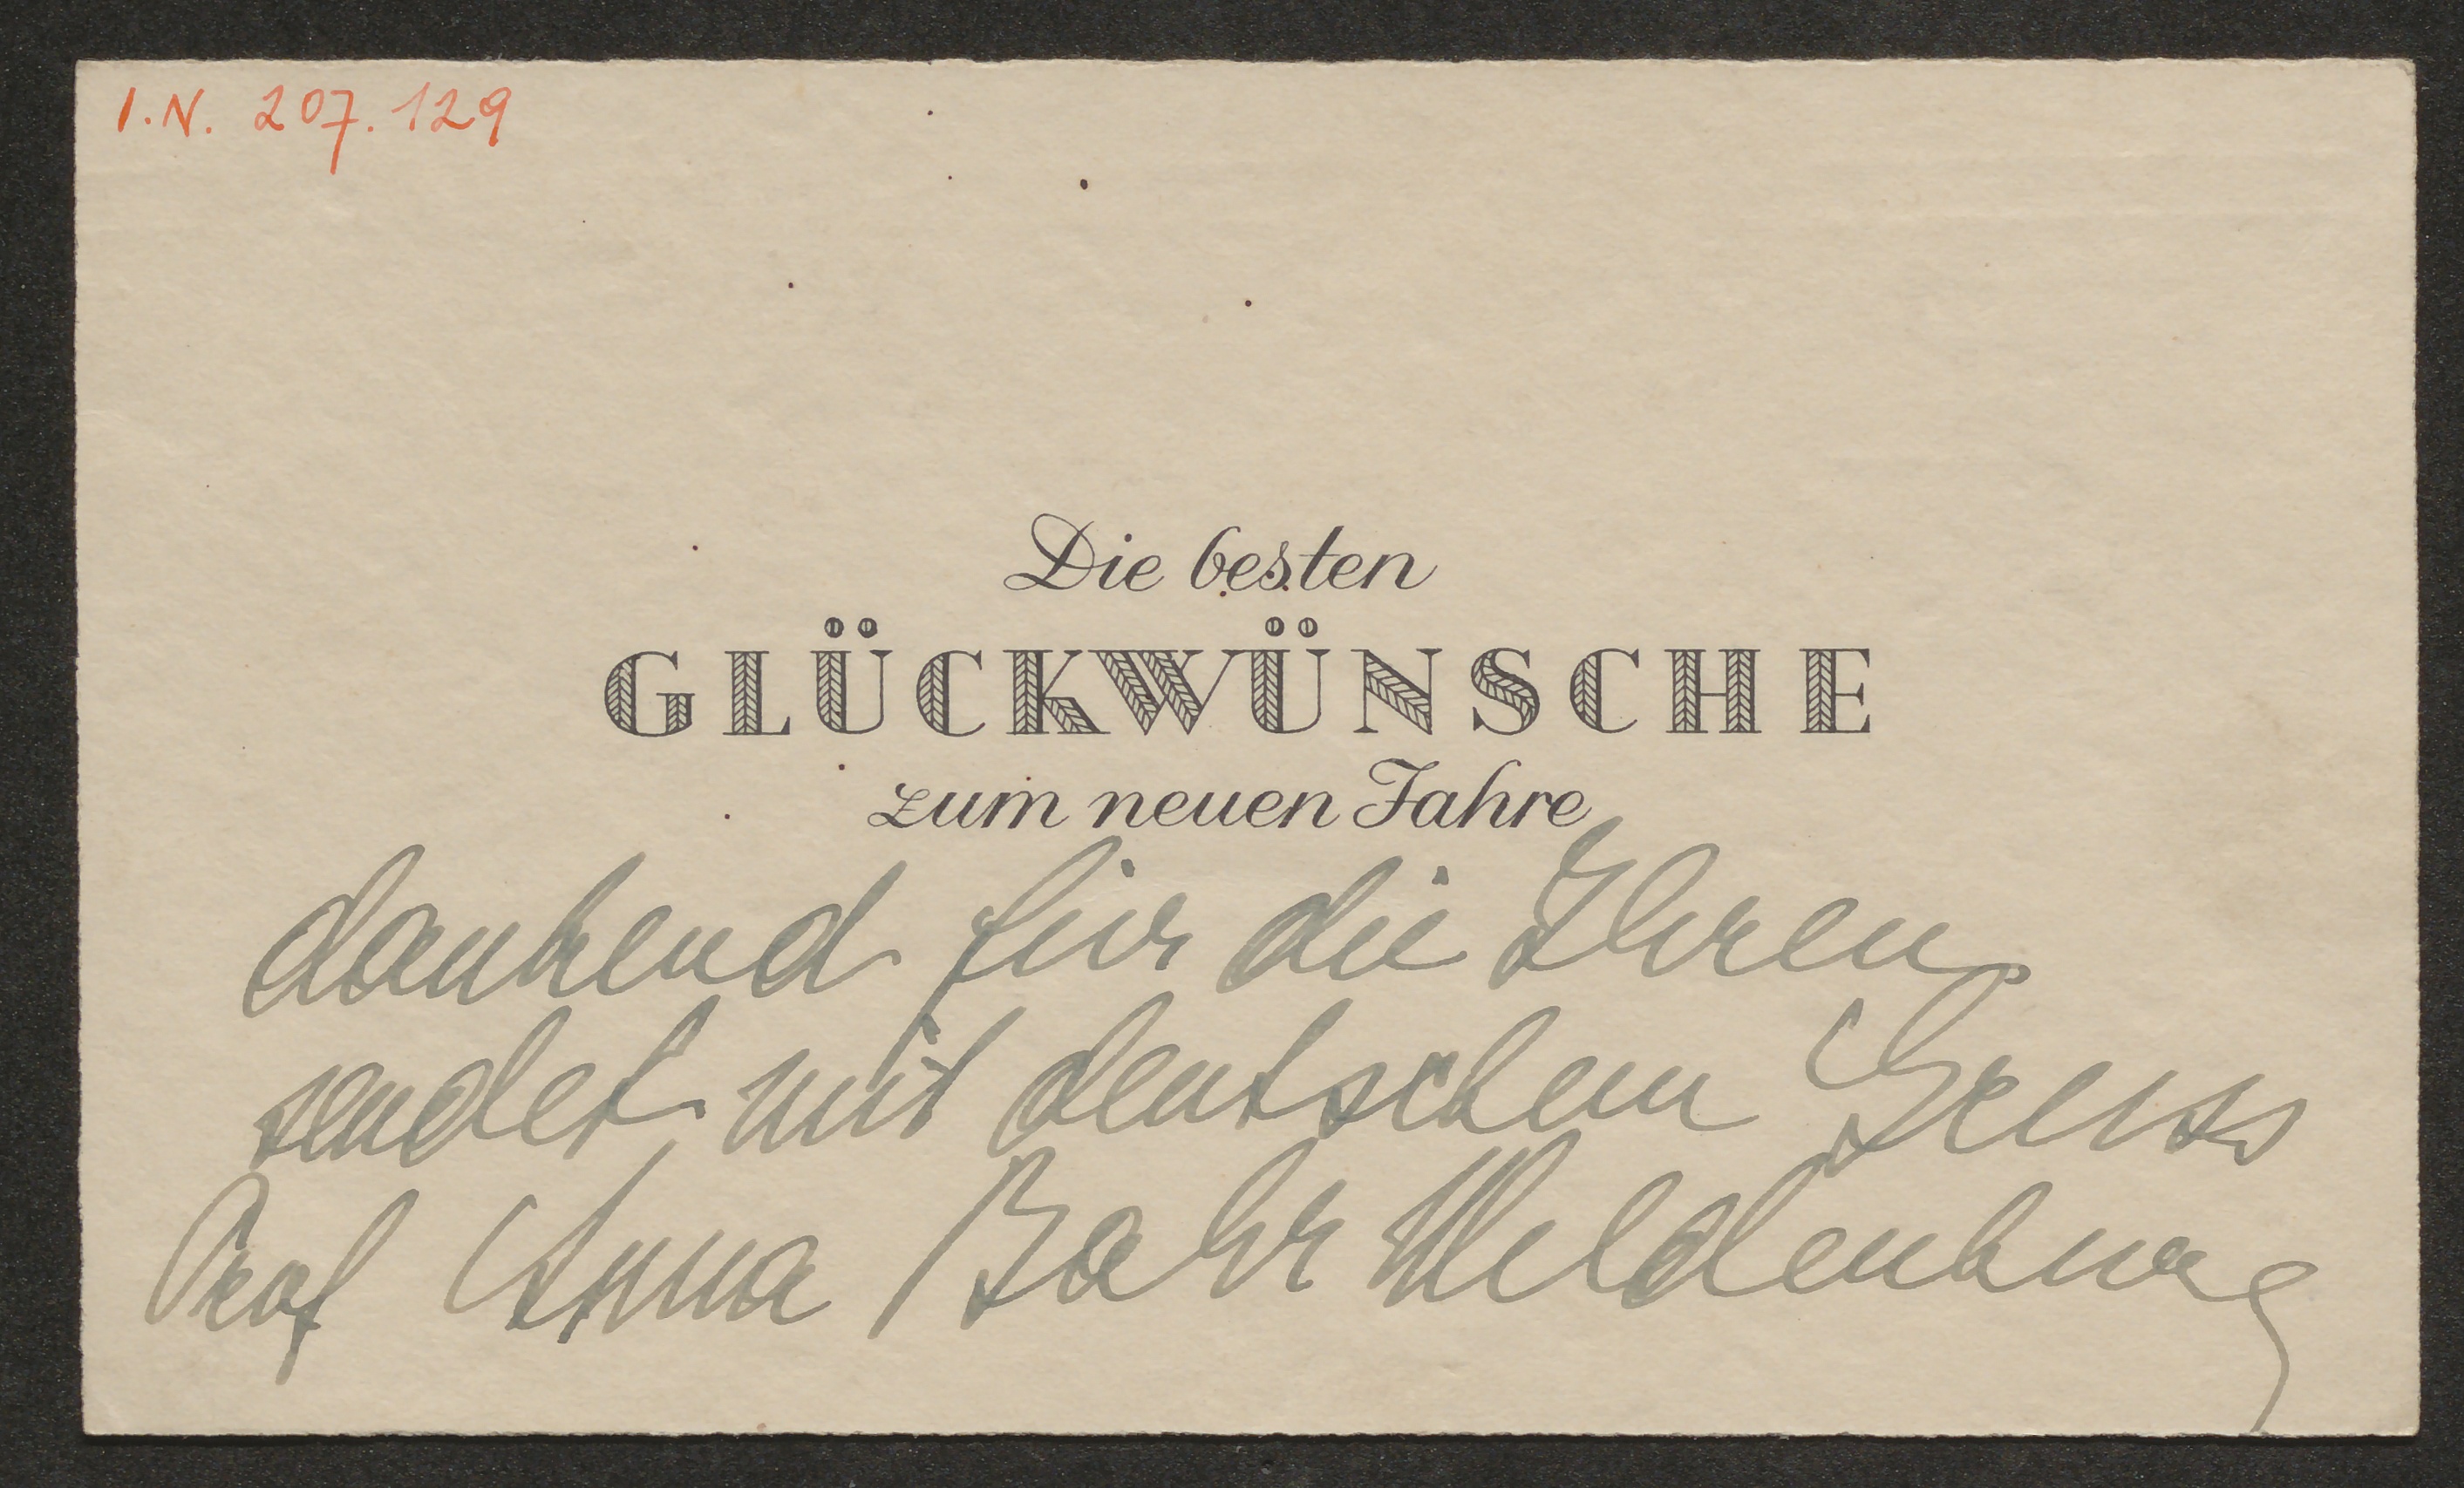 I.N. 207.129
Die besten
GLÜCKWÜNSCHE
zum neuen Jahre
dankend für die Ihren
sendet mit deutschem Gruss
Prof Anna Bahr Mildenburg